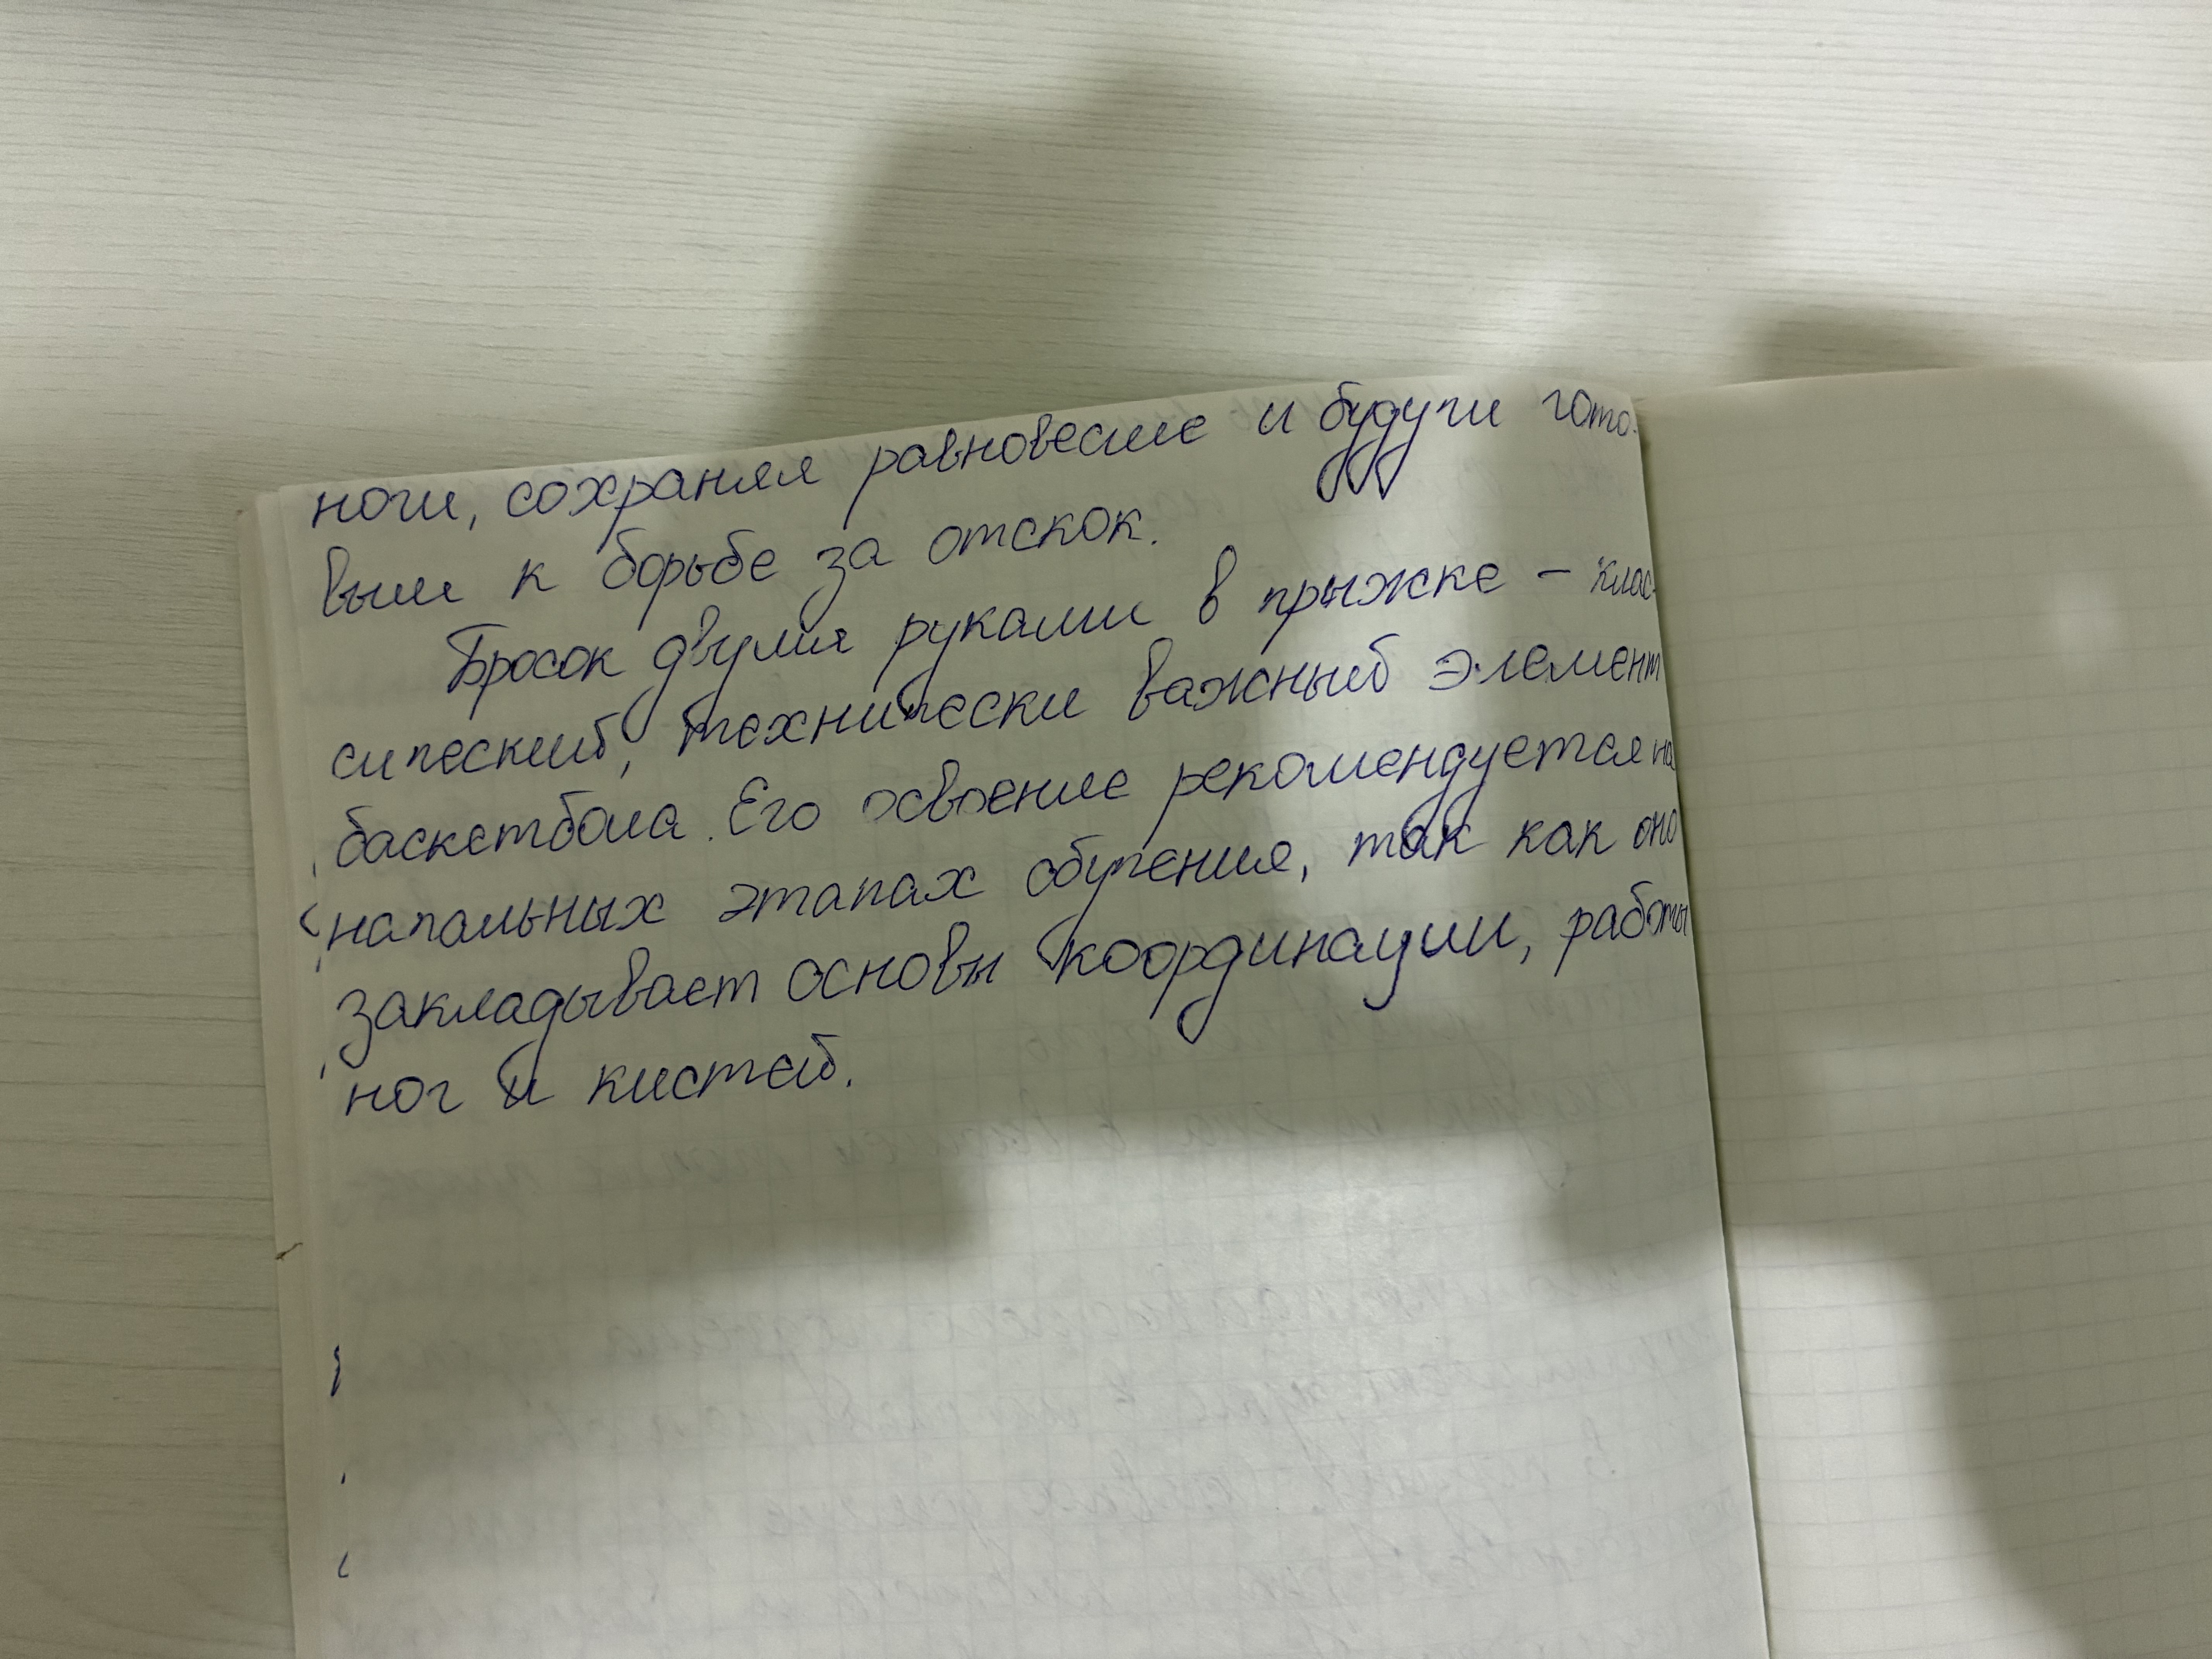 ноги, сохраняя равновесие и будучи гото-
вым к борьбе за отскок.
Бросок двумя руками в прыжке – клас-
сический, технически важный элемент
баскетбола. Его освоение рекомендуется на
начальных этапах обучения, так как оно
закладывает основы координации, работы
ног и кистей.